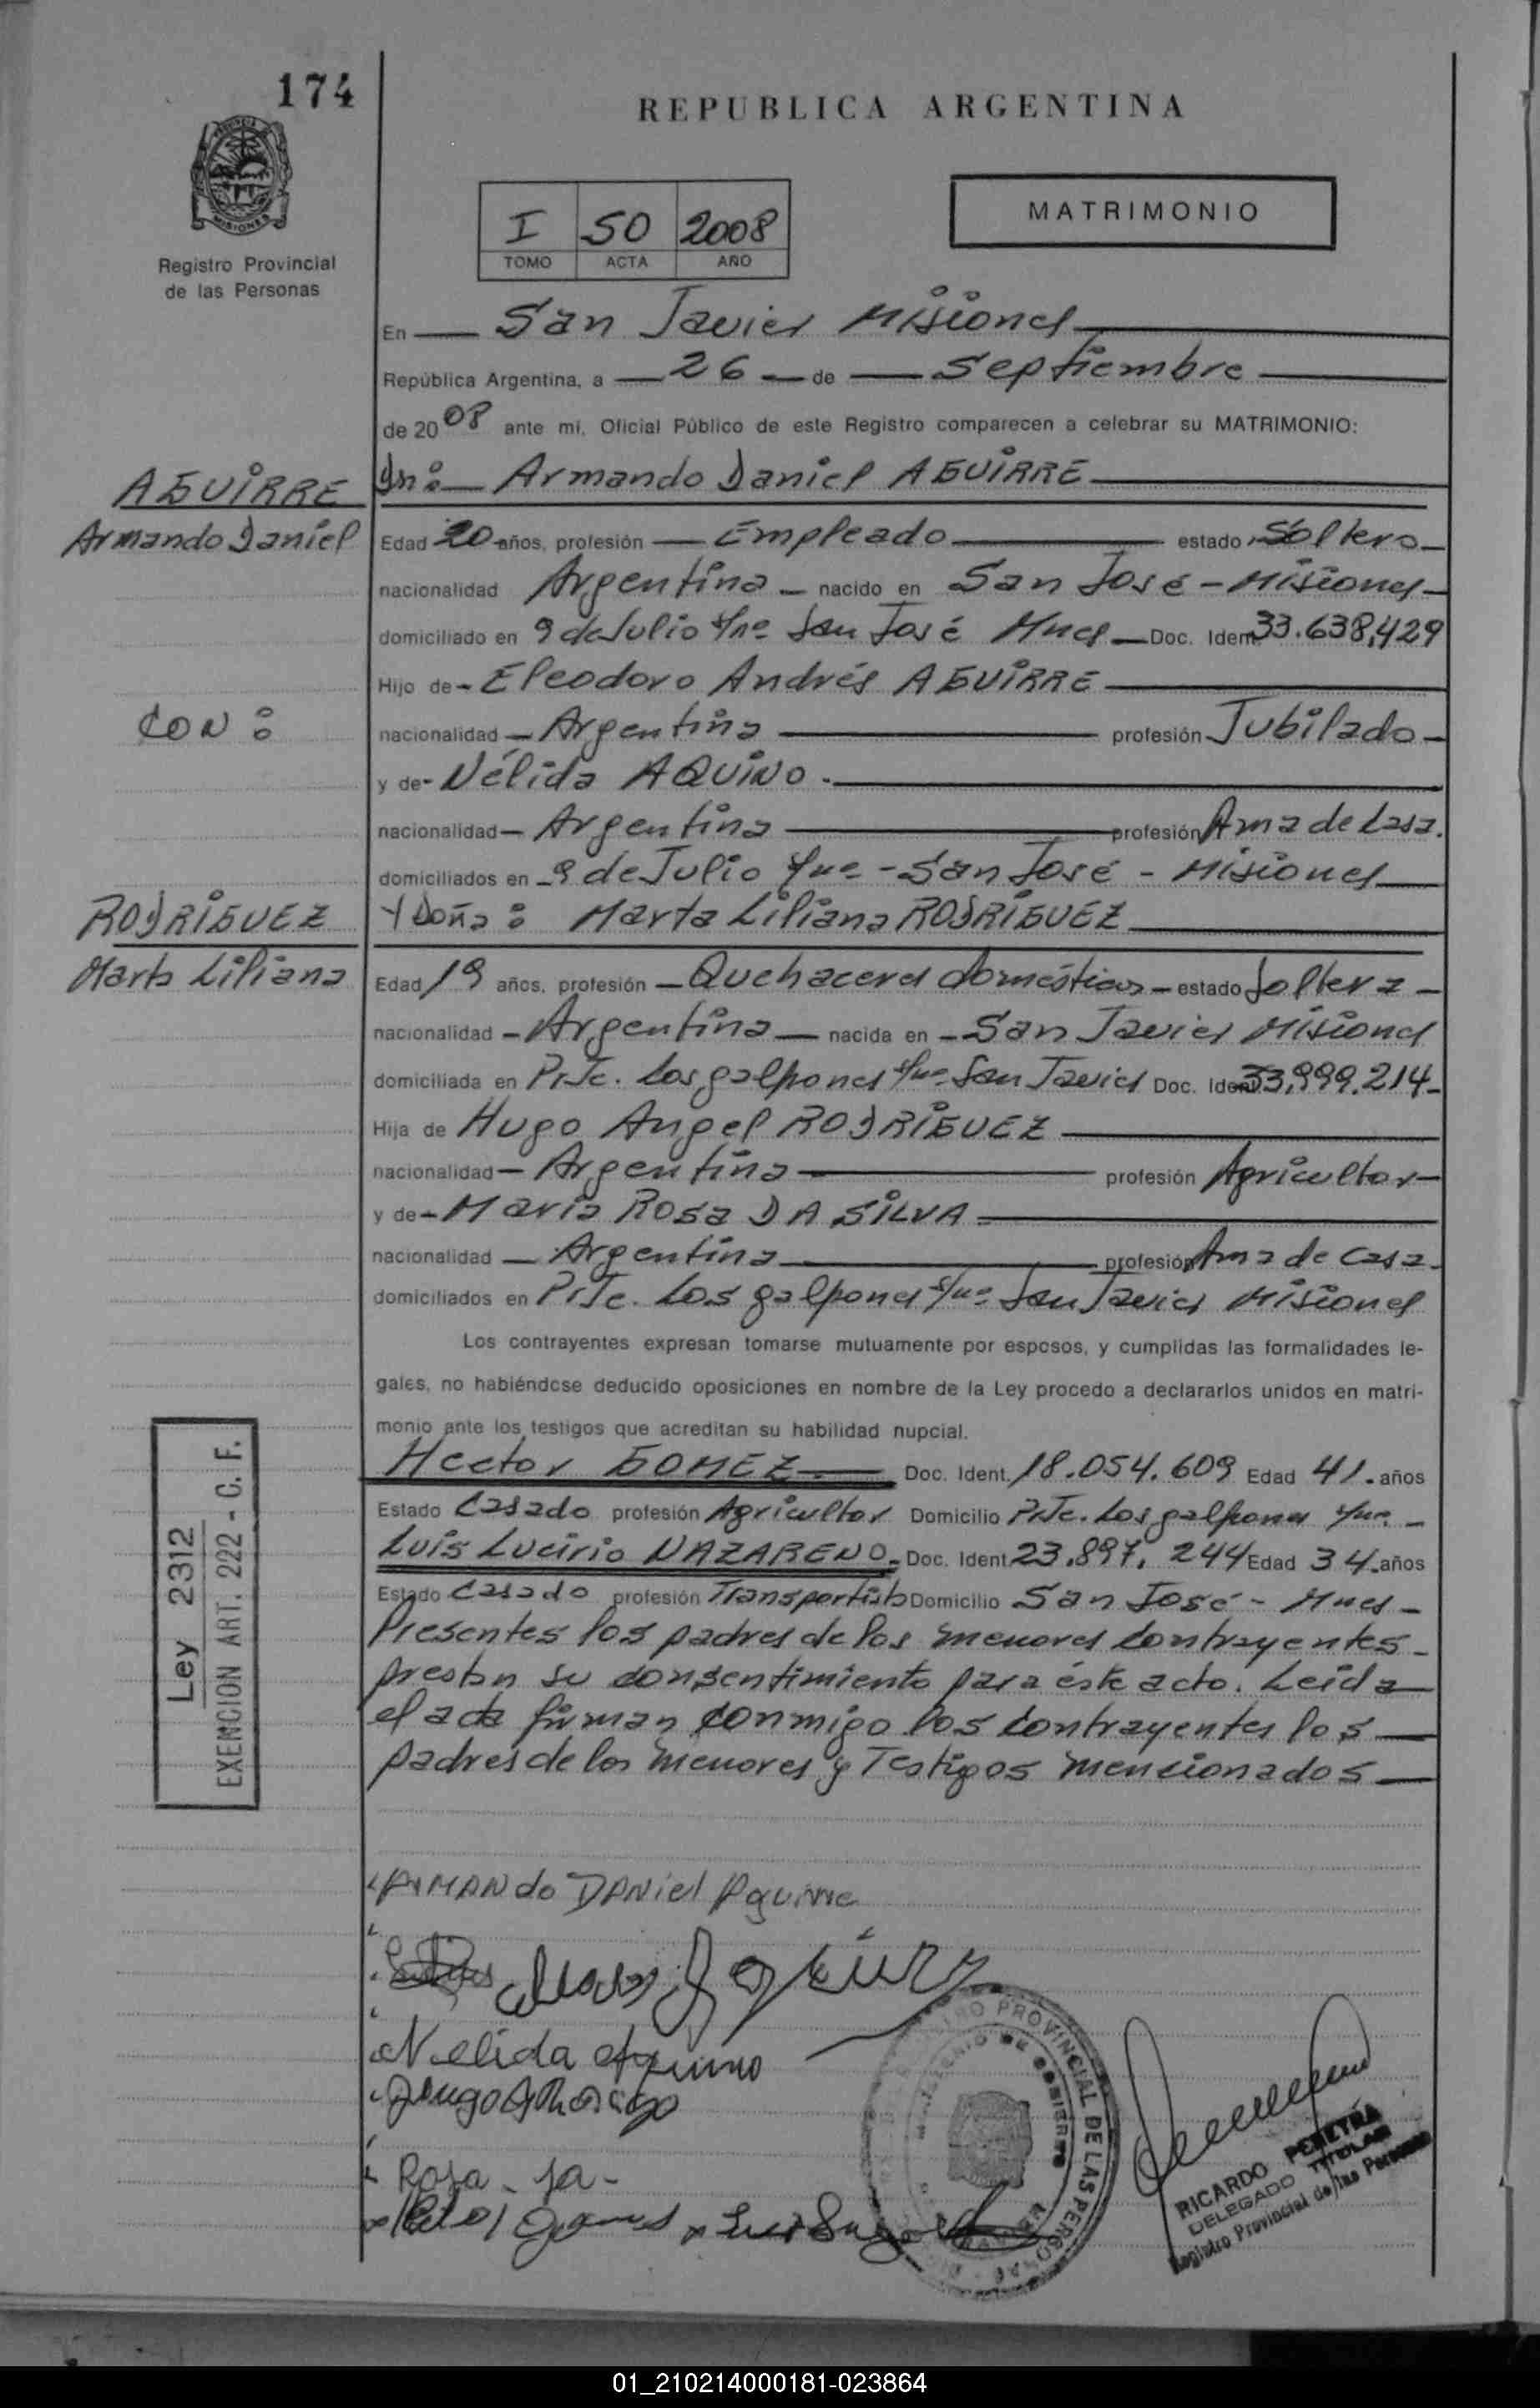 174
REPUBLICA ARGENTINA
MISIONES
Registro Provincial
de las Personas
I 50 2008
TOMO ACTA AÑO
MATRIMONIO
En — San Javier Misiones
República Argentina, a — 26 — de — Septiembre
de 2008 ante mí, Oficial Público de este Registro comparecen a celebrar su MATRIMONIO:
AGUIRRE
Armando Daniel
Dn: — Armando Daniel AGUIRRE
Edad 20 años, profesión — Empleado — estado Soltero —
nacionalidad Argentina — nacido en San José - Misiones —
domiciliado en 9 de Julio s/nº San José Mnes — Doc. Ident. 33.638.429
Hijo de - Eleodoro Andrés AGUIRRE
CON :
nacionalidad — Argentina — profesión Jubilado —
y de - Nélida AQUINO .
nacionalidad — Argentina — profesión Ama de Casa.
domiciliados en - 9 de Julio s/nº - San José - Misiones
RODRIGUEZ
Marta Liliana
Y Doña : Marta Liliana RODRIGUEZ
Edad 19 años, profesión — Quehaceres domésticos — estado Soltera —
nacionalidad - Argentina — nacida en - San Javier Misiones
domiciliada en Pje. Los galpones s/nº San Javier Doc. Ident. 33.999.214 -
Hija de Hugo Angel RODRIGUEZ
nacionalidad — Argentina — profesión Agricultor —
y de - Maria Rosa DA SILVA
nacionalidad — Argentina — profesión Ama de casa.
domiciliados en Pje. Los galpones s/nº San Javier Misiones
Los contrayentes expresan tomarse mutuamente por esposos, y cumplidas las formalidades le-
gales, no habiéndose deducido oposiciones en nombre de la Ley procedo a declararlos unidos en matri-
monio ante los testigos que acreditan su habilidad nupcial.
Hector GOMEZ — Doc. Ident. 18.054.609 Edad 41. años
Estado Casado profesión Agricultor Domicilio Pje. Los galpones s/nº. -
Luis Lucirio NAZARENO - Doc. Ident. 23.897.244 Edad 34. años
Estado Casado profesión Transportista Domicilio San José - Mnes -
Presentes los padres de los menores contrayentes -
prestan su consentimiento para éste acto. Leída
el acta firman conmigo los contrayentes los
padres de los menores y Testigos mencionados
Ley 2312
EXENCION ART. 222 - C. F.
ARMANDO DANiel Aguirre
Nelida Aquino
Rosa
REGISTRO PROVINCIAL DE LAS PERSONAS
MINISTERIO DE GOBIERNO
RICARDO PEREYRA
DELEGADO TITULAR
Registro Provincial de las Personas
01_210214000181-023864